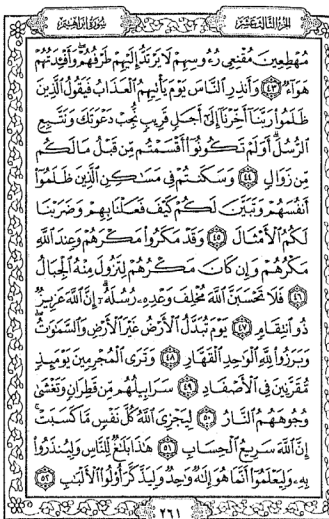 الجزء الثالث عشر سورة إبراهيم
مُهْطِعِينَ مُقْنِعِي رُءُوسِهِمْ لَا يَرْتَدُّ إِلَيْهِمْ طَرْفُهُمْ وَأَفْئِدَتُهُمْ
هَوَآءٌ ٤٣ وَأَنذِرِ النَّاسَ يَوْمَ يَأْتِيهِمُ الْعَذَابُ فَيَقُولُ الَّذِينَ
ظَلَمُوا رَبَّنَآ أَخِّرْنَآ إِلَىٰٓ أَجَلٍ قَرِيبٍ نُّجِبْ دَعْوَتَكَ وَنَتَّبِعِ
الرُّسُلَ أَوَلَمْ تَكُونُوٓا أَقْسَمْتُم مِّن قَبْلُ مَا لَكُم
مِّن زَوَالٍ ٤٤ وَسَكَنتُمْ فِي مَسَٰكِنِ الَّذِينَ ظَلَمُوٓا
أَنفُسَهُمْ وَتَبَيَّنَ لَكُمْ كَيْفَ فَعَلْنَا بِهِمْ وَضَرَبْنَا
لَكُمُ الْأَمْثَالَ ٤٥ وَقَدْ مَكَرُوا مَكْرَهُمْ وَعِندَ اللَّهِ
مَكْرُهُمْ وَإِن كَانَ مَكْرُهُمْ لِتَزُولَ مِنْهُ الْجِبَالُ
٤٦ فَلَا تَحْسَبَنَّ اللَّهَ مُخْلِفَ وَعْدِهِ رُسُلَهُ إِنَّ اللَّهَ عَزِيزٌ
ذُو انتِقَامٍ ٤٧ يَوْمَ تُبَدَّلُ الْأَرْضُ غَيْرَ الْأَرْضِ وَالسَّمَٰوَٰتُ
وَبَرَزُوا لِلَّهِ الْوَٰحِدِ الْقَهَّارِ ٤٨ وَتَرَى الْمُجْرِمِينَ يَوْمَئِذٍ
مُّقَرَّنِينَ فِي الْأَصْفَادِ ٤٩ سَرَابِيلُهُم مِّن قَطِرَانٍ وَتَغْشَىٰ
وُجُوهَهُمُ النَّارُ ٥٠ لِيَجْزِيَ اللَّهُ كُلَّ نَفْسٍ مَّا كَسَبَتْ
إِنَّ اللَّهَ سَرِيعُ الْحِسَابِ ٥١ هَٰذَا بَلَٰغٌ لِّلنَّاسِ وَلِيُنذَرُوا
بِهِ وَلِيَعْلَمُوٓا أَنَّمَا هُوَ إِلَٰهٌ وَٰحِدٌ وَلِيَذَّكَّرَ أُولُوا الْأَلْبَٰبِ ٥٢
٢٦١